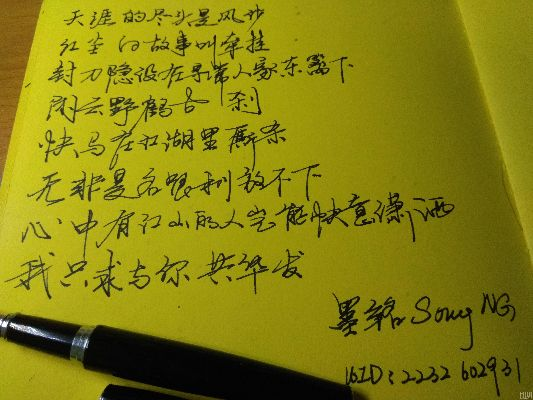 天涯的尽头是风沙
红尘的故事叫牵挂
封刀隐没在寻常人家东篱下
闲云野鹤古刹
快马在江湖里厮杀
无非是名跟利放不下
心中有江山的人岂能快意潇洒
我只求与你共华发
墨铭 Song NG
UID:2232602931
MIUI